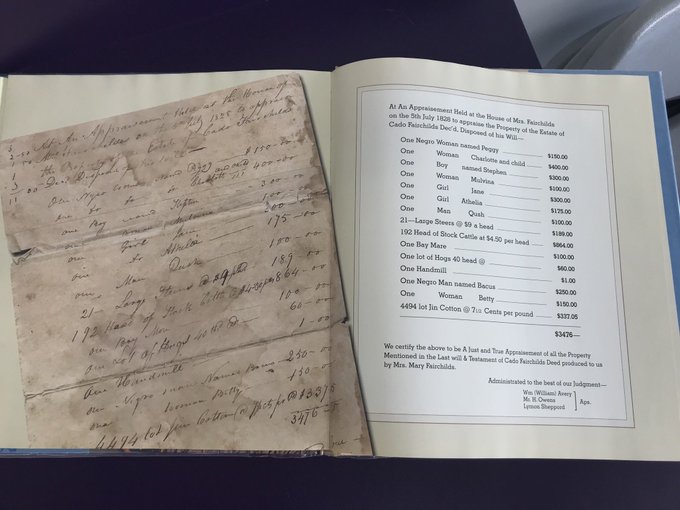 At An Appraisement Held at the House of
on 5 July 1828 to appraise
the Property
150-00
400-00
one Boy 300-00
one 100-00
one Girl Jane 300-00
one Do Athelia 175-00
one Man Qush 100-00
21- Large Steers @ 9 189
192 Head of Stock Cattle @ 4.50 864-00
one Bay Mare 100-00
one Lot of Hogs 40 hd @ 60-00
one Handmill 1-00
one Negro man Named Bacus 250-00
one Woman Betty 150-00
4494 lot Jin Cotton @
3476
At An Appraisement Held at the House of Mrs. Fairchilds
on the 5th July 1828 to appraise the Property of the Estate of
Cado Fairchilds Dec'd, Disposed of his Will—
One Negro Woman named Peggy $150.00
One Woman Charlotte and child $400.00
One Boy named Stephen $300.00
One Woman Mulvina $100.00
One Girl Jane $300.00
One Girl Athelia $175.00
One Man Qush $100.00
21—Large Steers @ $9 a head $189.00
192 Head of Stock Cattle at $4.50 per head $864.00
One Bay Mare $100.00
One lot of Hogs 40 head @ $60.00
One Handmill $1.00
One Negro Man named Bacus $250.00
One Woman Betty $150.00
4494 lot Jin Cotton @ 7 1/2 Cents per pound $337.05
$3476—
We certify the above to be A Just and True Appraisement of all the Property
Mentioned in the Last will & Testament of Cado Fairchilds Deed produced to us
by Mrs. Mary Fairchilds.
Administrated to the best of our Judgment—
Wm (William) Avery
Mr. H. Owens
Lymos Sheppord
Aps.